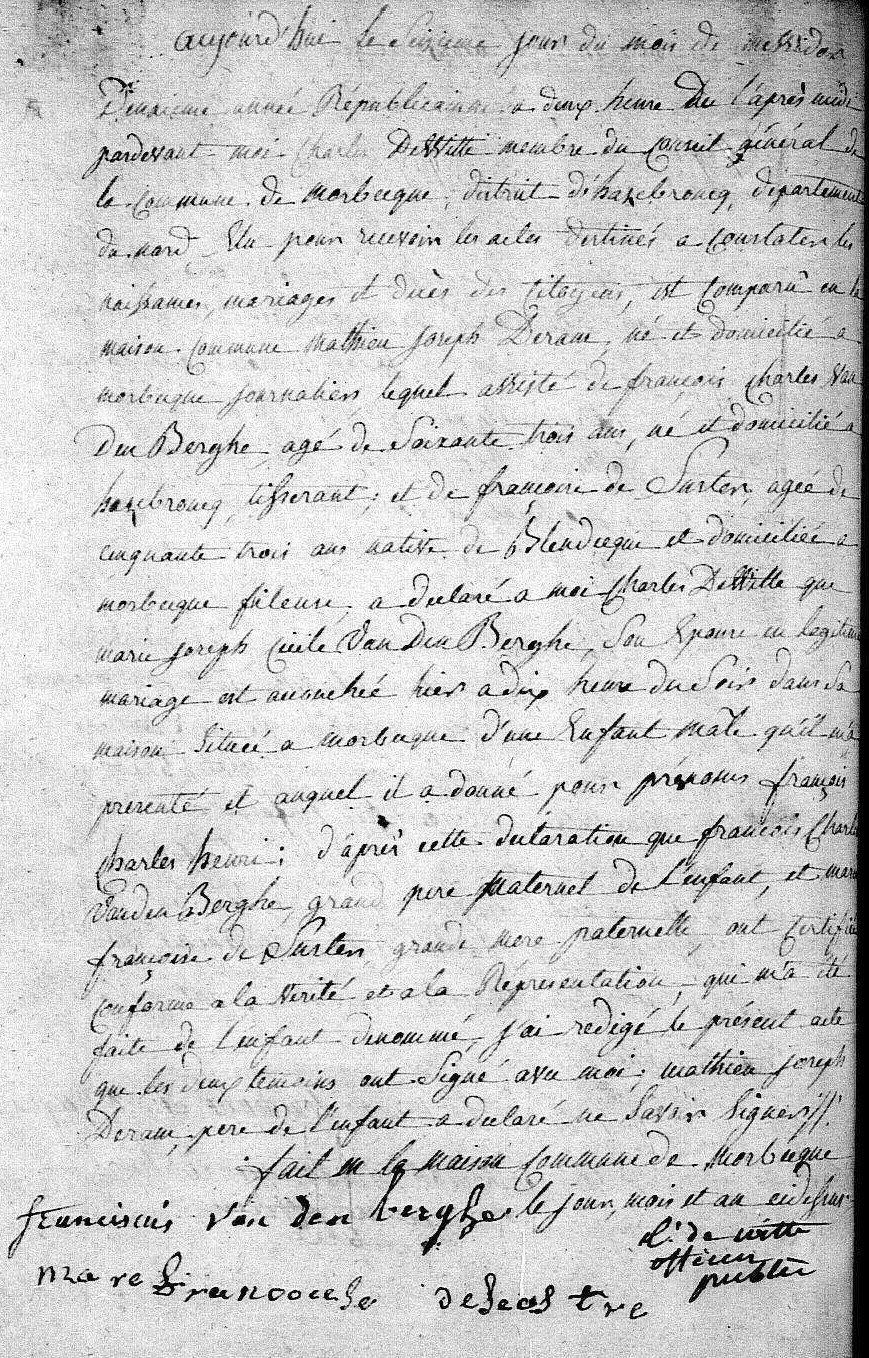 aujourd'hui le Seizieme jour du mois de messidor
Deuxieme année Républicainne a deux heure Du l'après midi
pardevant moi Charles DeWitte membre du Conseil général de
la Commune de morbecque, district d'hazebroucq, département
du nord Elu pour recevoir les actes destinés a Constater les
naissances, mariages et décès des Citoyens, est Comparû en la
maison Commune mathieu joseph Deram, né et domicilié a
morbecque journalier, lequel assisté de françois Charles Van
Den Berghe, agé de Soixante trois ans, né et domicilié a
hazebroucq, tisserant; et de françoise de Surten, ageé de
cinquante trois ans native de Blendecque et domiciliée a
morbecque fileuse, a declaré a moi Charles DeWitte que
marie joseph Cicile Van Den Berghe, Son Epouse en legitime
mariage est accouchée hier a dix heure du Soir dans Sa
maison Situeé a morbecque d'une Enfant mâle qu'il m'a
presenté et auquel il a donné pour prénoms françois
Charles henri; d'après cette declaration que françois Charles
Vanden Berghe, grand pere Maternel de l'enfant, et marie
françoise de Surten, grande mere paternelle, ont Certifié
conforme a la Vérité et a la Représentation, qui m'a été
faite de l'enfant denommé, j'ai redigé le présent acte
que les deux temoins ont Signé avec moi; mathieu joseph
Deram, pere de l'enfant a declaré ne Savoir Signer //.
fait en la maison Commune de Morbecque
le jour, mois et an cidessus
franciscus Van den berghe
C. de witte
officier
public
mare francoise